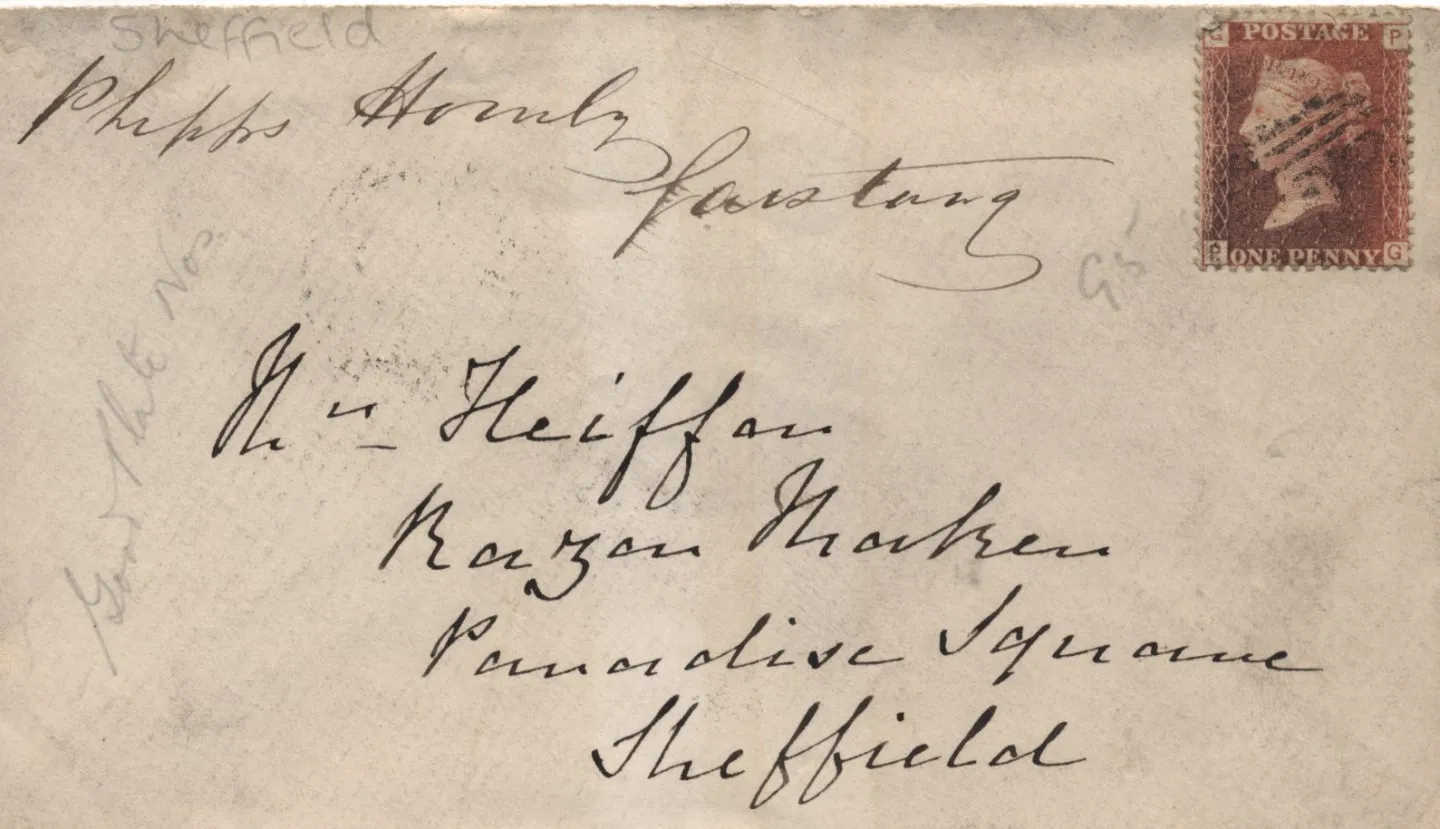 Sheffield
Phipps Hornby
Garstang
POSTAGE
G P
P G
ONE PENNY
Mr Heiffor
Razor Maker
Paradise Square
Sheffield
Good Plate Nos